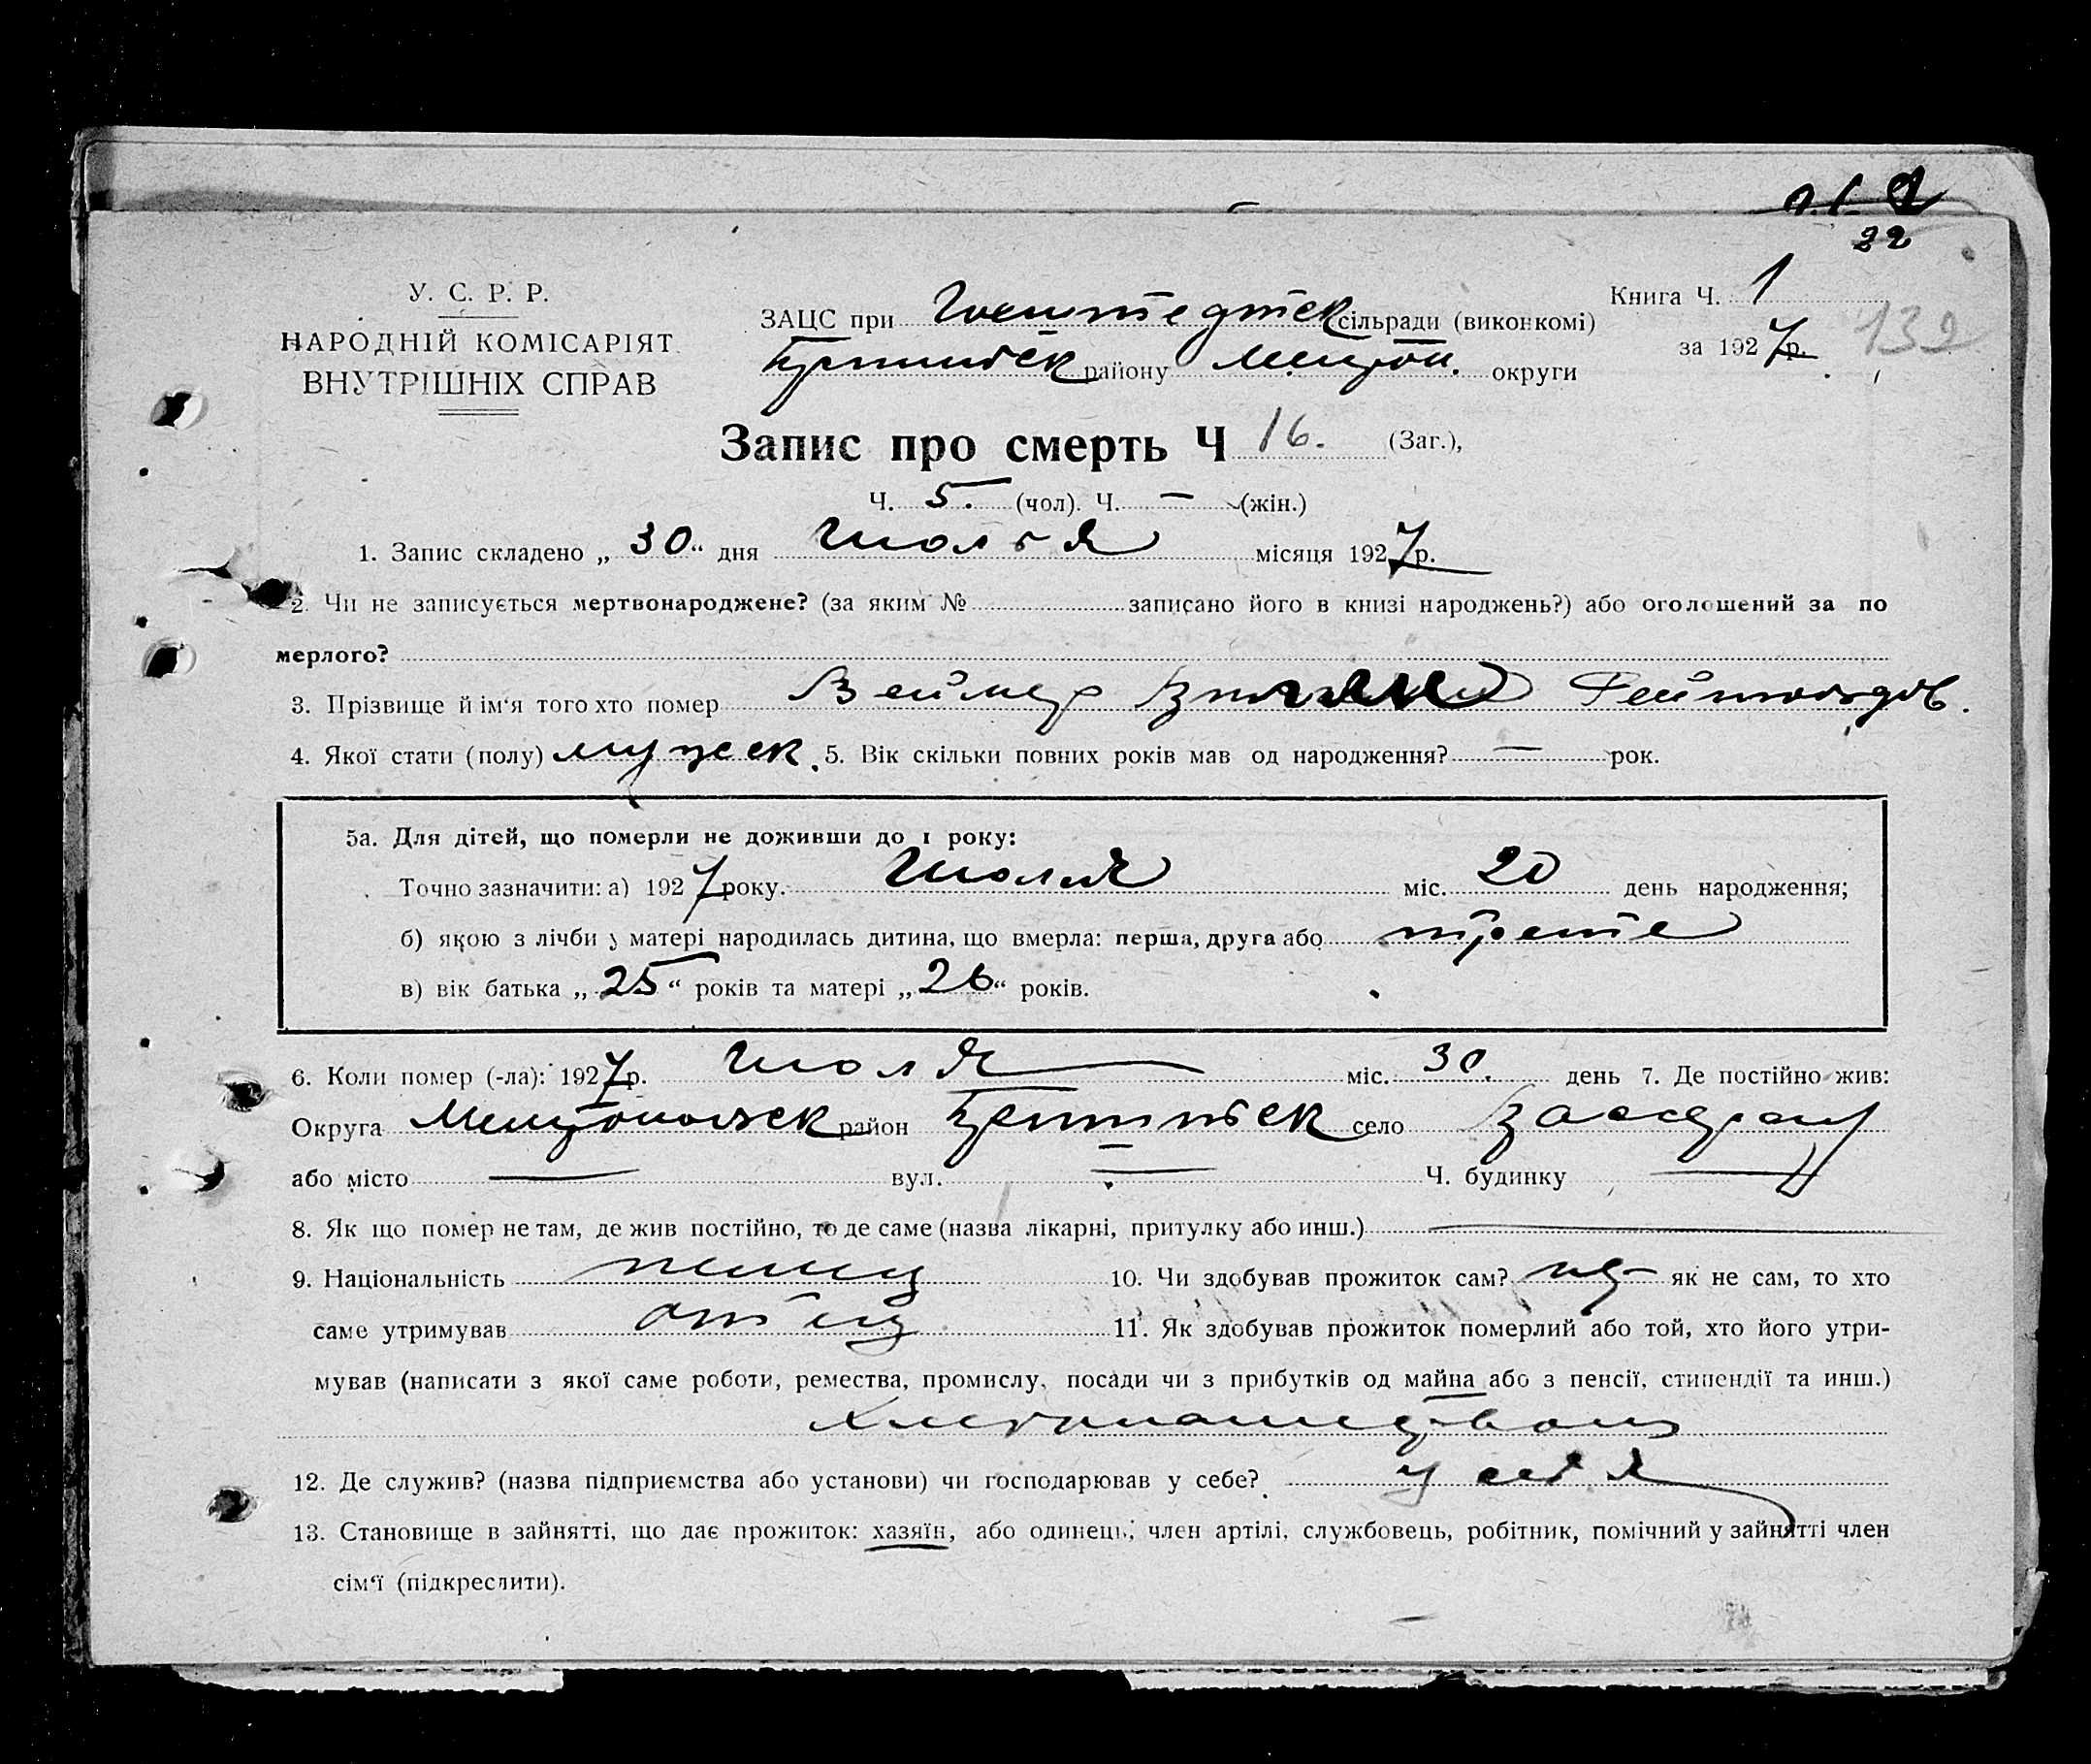 22
У. С. Р. Р.
НАРОДНІЙ КОМІСАРІЯТ
ВНУТРІШНІХ СПРАВ
ЗАЦС при сільради (виконкомі)
району Мелітоп. округи
Книга Ч. 1
за 1927 р. 132
Запис про смерть Ч 16. (Заг.),
Ч. 5. (чол). Ч. — (жін.)
1. Запис складено „ 30 “ дня Июля місяця 1927 р.
2. Чи не записується мертвонароджене? (за яким № записано його в книзі народжень?) або оголошений за по
мерлого?
3. Прізвище й ім‘я того хто помер Веймер Рейнгольдов.
4. Якої стати (полу) мужск. 5. Вік скільки повних років мав од народження? — рок.
5а. Для дітей, що померли не доживши до 1 року:
Точно зазначити: а) 1927 року. Июля міс. 20 день народження;
б) якою з лічби у матері народилась дитина, що вмерла: перша, друга або третє
в) вік батька „ 25 “ років та матері „ 26 “ років.
6. Коли помер (-ла): 1927 р. Июля міс. 30. день 7. Де постійно жив:
Округа Мелитопольск район село
або місто — вул. — Ч. будинку —
8. Як що помер не там, де жив постійно, то де саме (назва лікарні, притулку або инш.) —
9. Національність немец 10. Чи здобував прожиток сам? як не сам, то хто
саме утримував отец 11. Як здобував прожиток померлий або той, хто його утри-
мував (написати з якої саме роботи, ремества, промислу, посади чи з прибутків од майна або з пенсії, стипендії та инш.)
Хлебопашеством
12. Де служив? (назва підприємства або установи) чи господарював у себе? у себя
13. Становище в зайнятті, що дає прожиток: хазяїн, або одинець, член артілі, службовець, робітник, помічний у зайнятті член
сім‘ї (підкреслити).